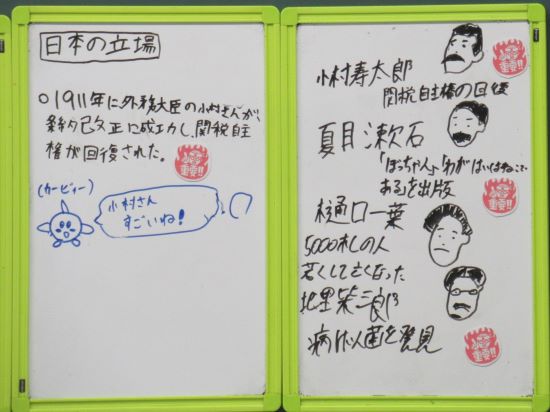 日本の立場
○1911年に外務大臣の小村さんが、
条約改正に成功し、関税自主
権が回復された。
重要!!
(カービィー)
小村さん
すごいね!
小村寿太郎
重要!!
関税自主権の回復
夏目漱石
「ぼっちゃん」「わがはいはねこで
ある」を出版
重要!!
樋口一葉
5000札の人
若くして亡くなった
北里柴三郎
病げん菌を発見
重要!!